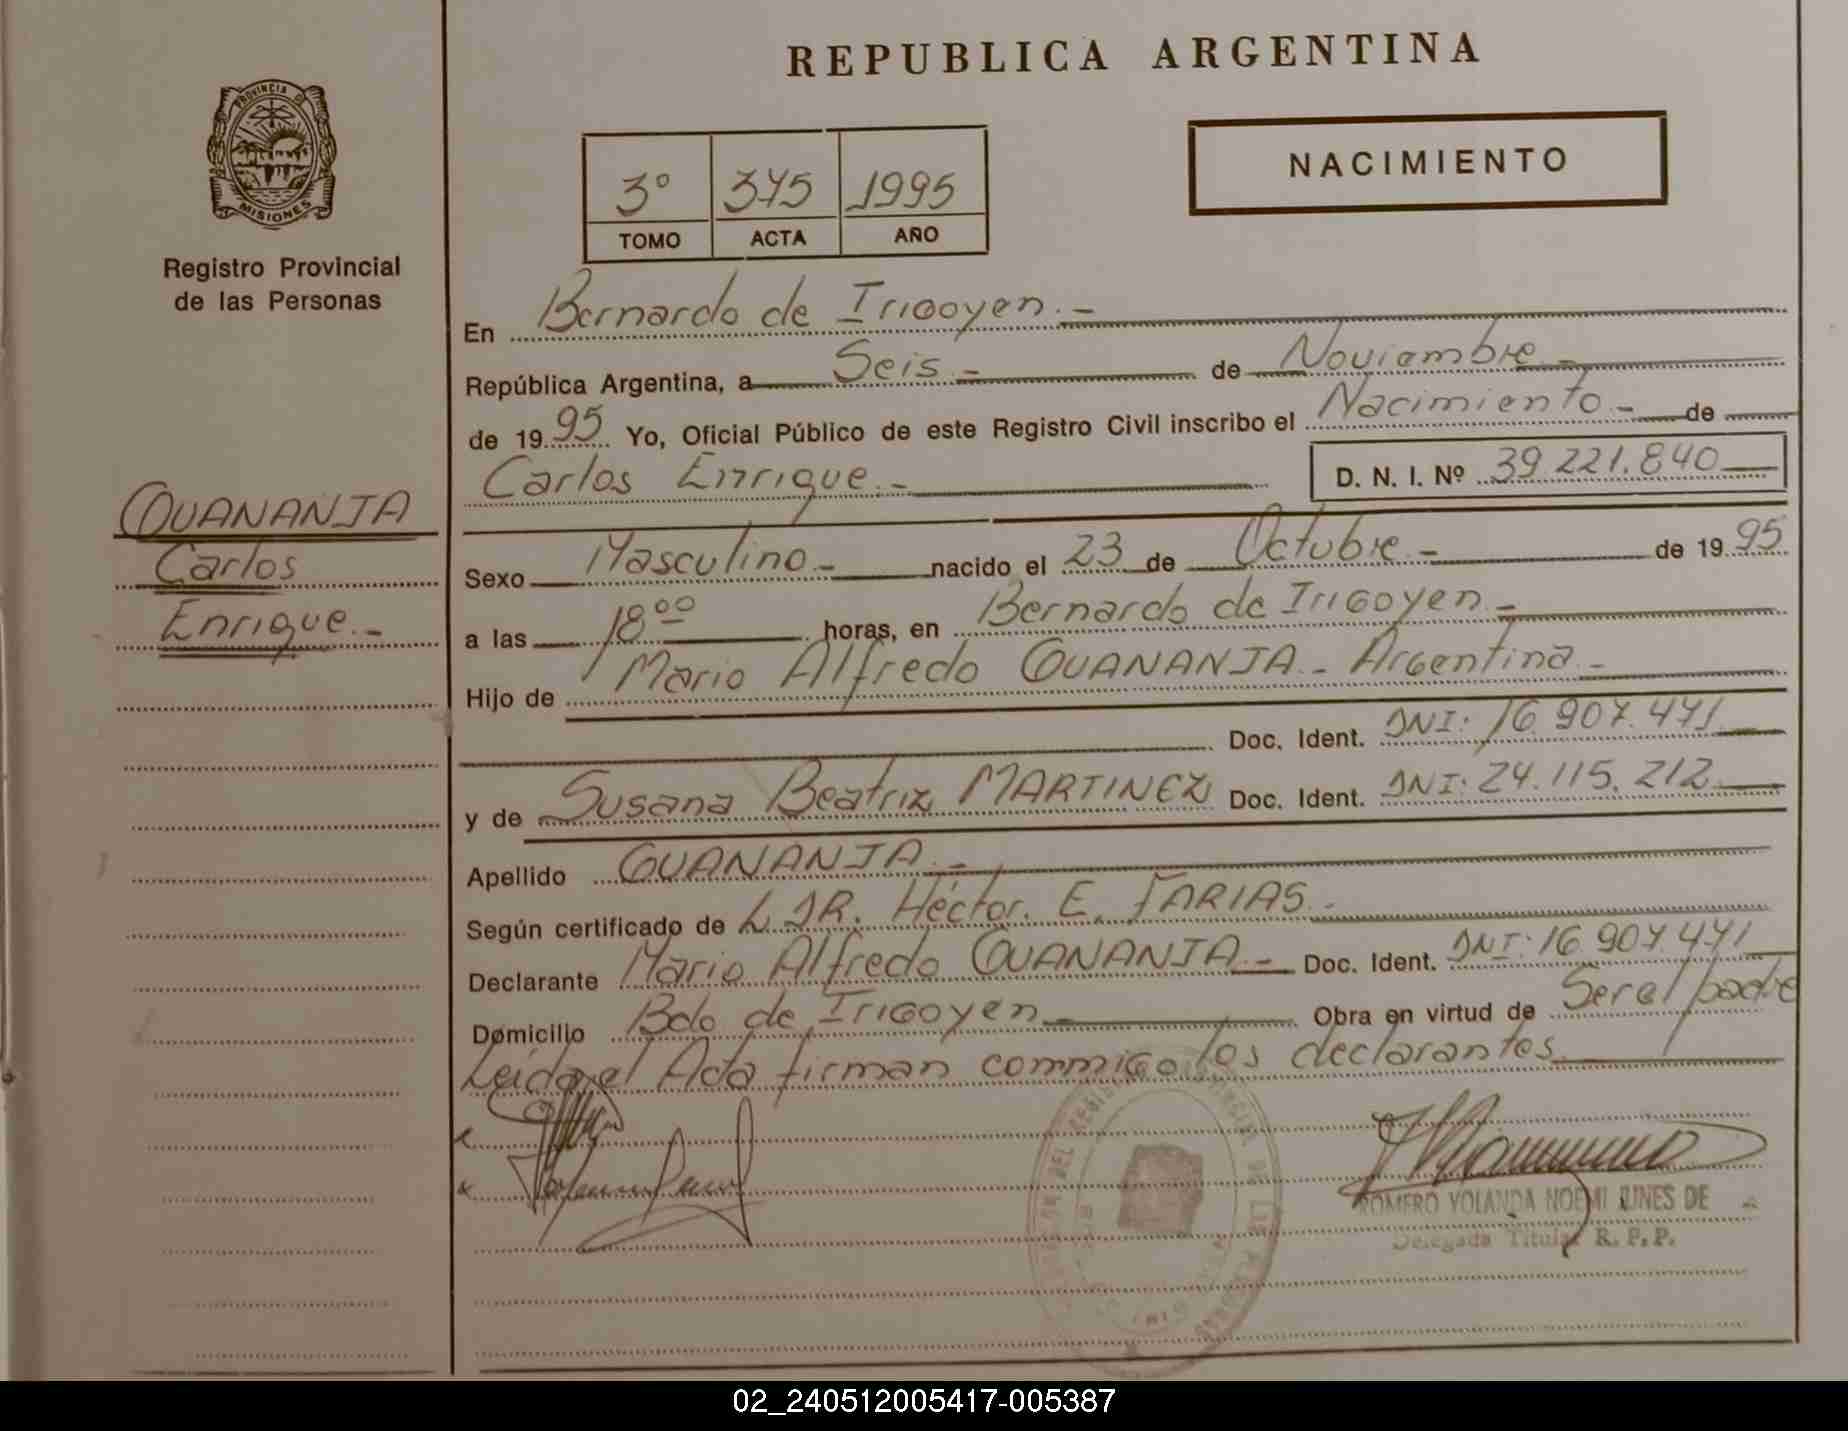 REPUBLICA ARGENTINA
PROVINCIA DE
MISIONES
Registro Provincial
de las Personas
NACIMIENTO
3º 375 1995
TOMO ACTA AÑO
En Bernardo de Irigoyen.-
República Argentina, a Seis.- de Noviembre.-
de 1995 Yo, Oficial Público de este Registro Civil inscribo el Nacimiento.- de
Carlos Enrique.- D. N. I. Nº 39.221.840
GUANANJA
Carlos
Enrique.-
Sexo Masculino.- nacido el 23 de Octubre.- de 1995
a las 18 00 horas, en Bernardo de Irigoyen.-
Hijo de Mario Alfredo GUANANJA - Argentina.-
Doc. Ident. DNI: 16.907.471
y de Susana Beatriz MARTINEZ Doc. Ident. DNI: 24.115.212
Apellido GUANANJA.-
Según certificado de L DR. Héctor. E. FARIAS.-
Declarante Mario Alfredo GUANANJA.- Doc. Ident. DNI: 16.907.471
Domicilio Bdo de Irigoyen Obra en virtud de Ser el padre
Leída el Acta firman conmigo los declarantes.
ROMERO YOLANDA NOEMI DE
Delegada Titular R. P. P.
02_240512005417-005387